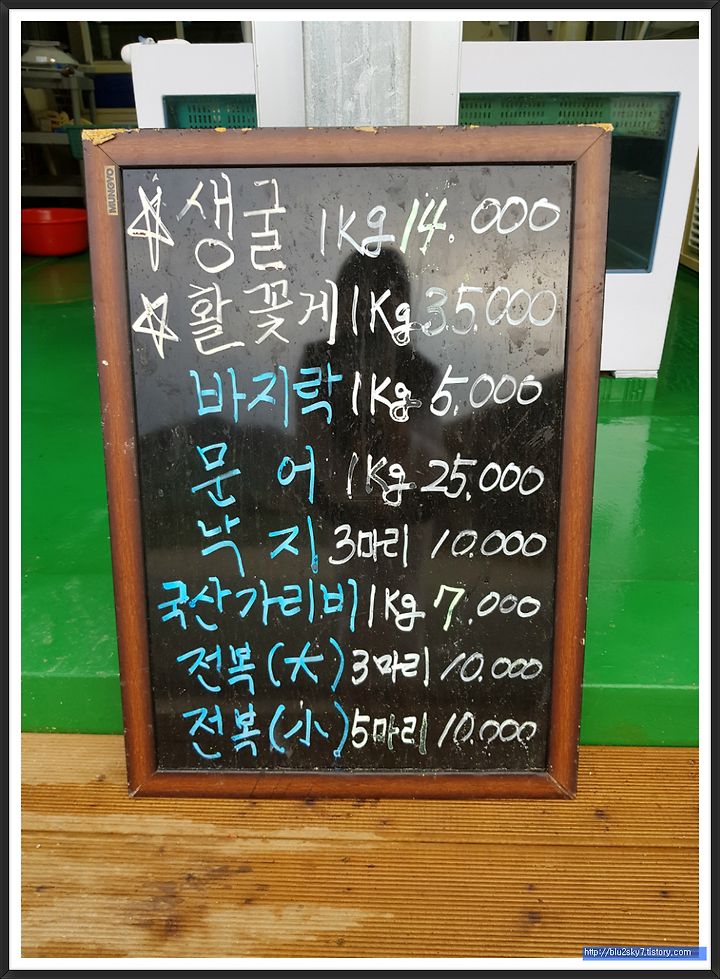 MUNGYO
☆ 생굴 1Kg 14.000
☆ 활꽃게 1Kg 35.000
바지락 1Kg 5.000
문어 1Kg 25.000
낙지 3마리 10.000
국산가리비 1Kg 7.000
전복(大) 3마리 10.000
전복(小) 5마리 10.000
http://blu2sky7.tistory.com